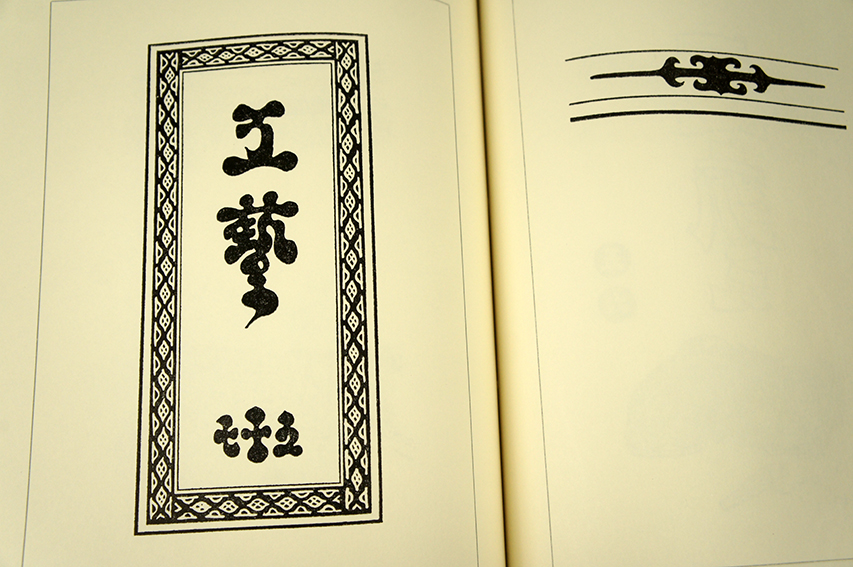 工藝
七十五